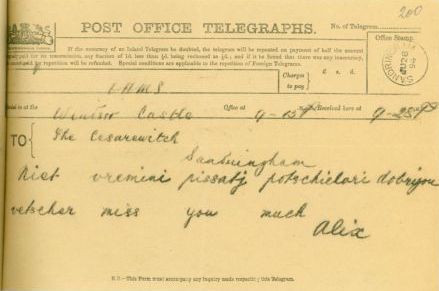 200
POST OFFICE TELEGRAPHS. No. of Telegram
If the accuracy of an Inland Telegram be doubted, the telegram will be repeated on payment of half the amount
paid for its transmission, any fraction of 1d. less than ½d. being reckoned as ½d.; and if it be found that there was any inaccuracy,
the amount paid for repetition will be refunded. Special conditions are applicable to the repetition of Foreign Telegrams.
Office Stamp.
SANDRINGHAM
JU 28
94
Charges to pay £ s. d.
Handed in at the Windsor Castle Office at 9-15P Received here at 9-25P
TO The Cesarewitch
Sandringham
Niet vremini pissatj potschielori dobryou
vetscher miss you much
Alix
N.B.—This Form must accompany any inquiry made respecting this Telegram.